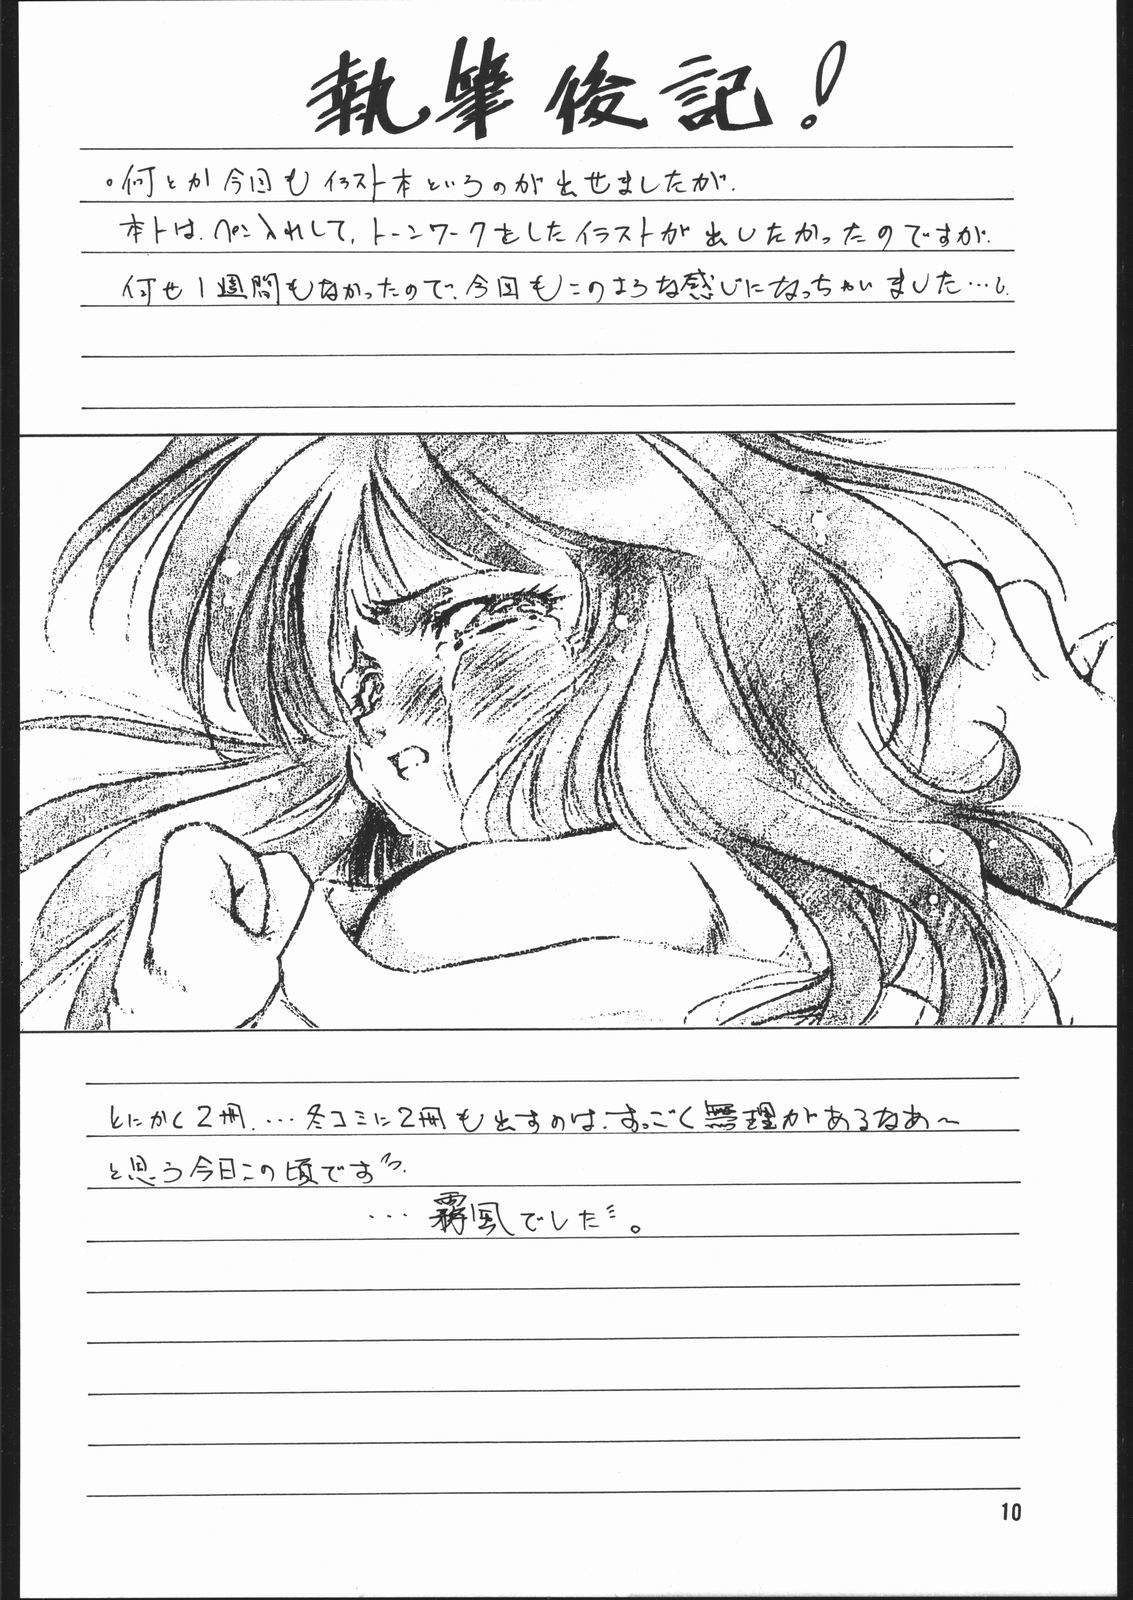 執筆後記!
。何とか今回もイラスト本というのが出せましたが、
本トは、ペン入れして、トーンワークをしたイラストが出したかったのですが、
何せ1週間もなかったので、今回もこのような感じになっちゃいました…
とにかく2冊、…冬コミに2冊も出すのは、すっごく無理があるなあ〜
と思う今日この頃です
…霧風でした。
10